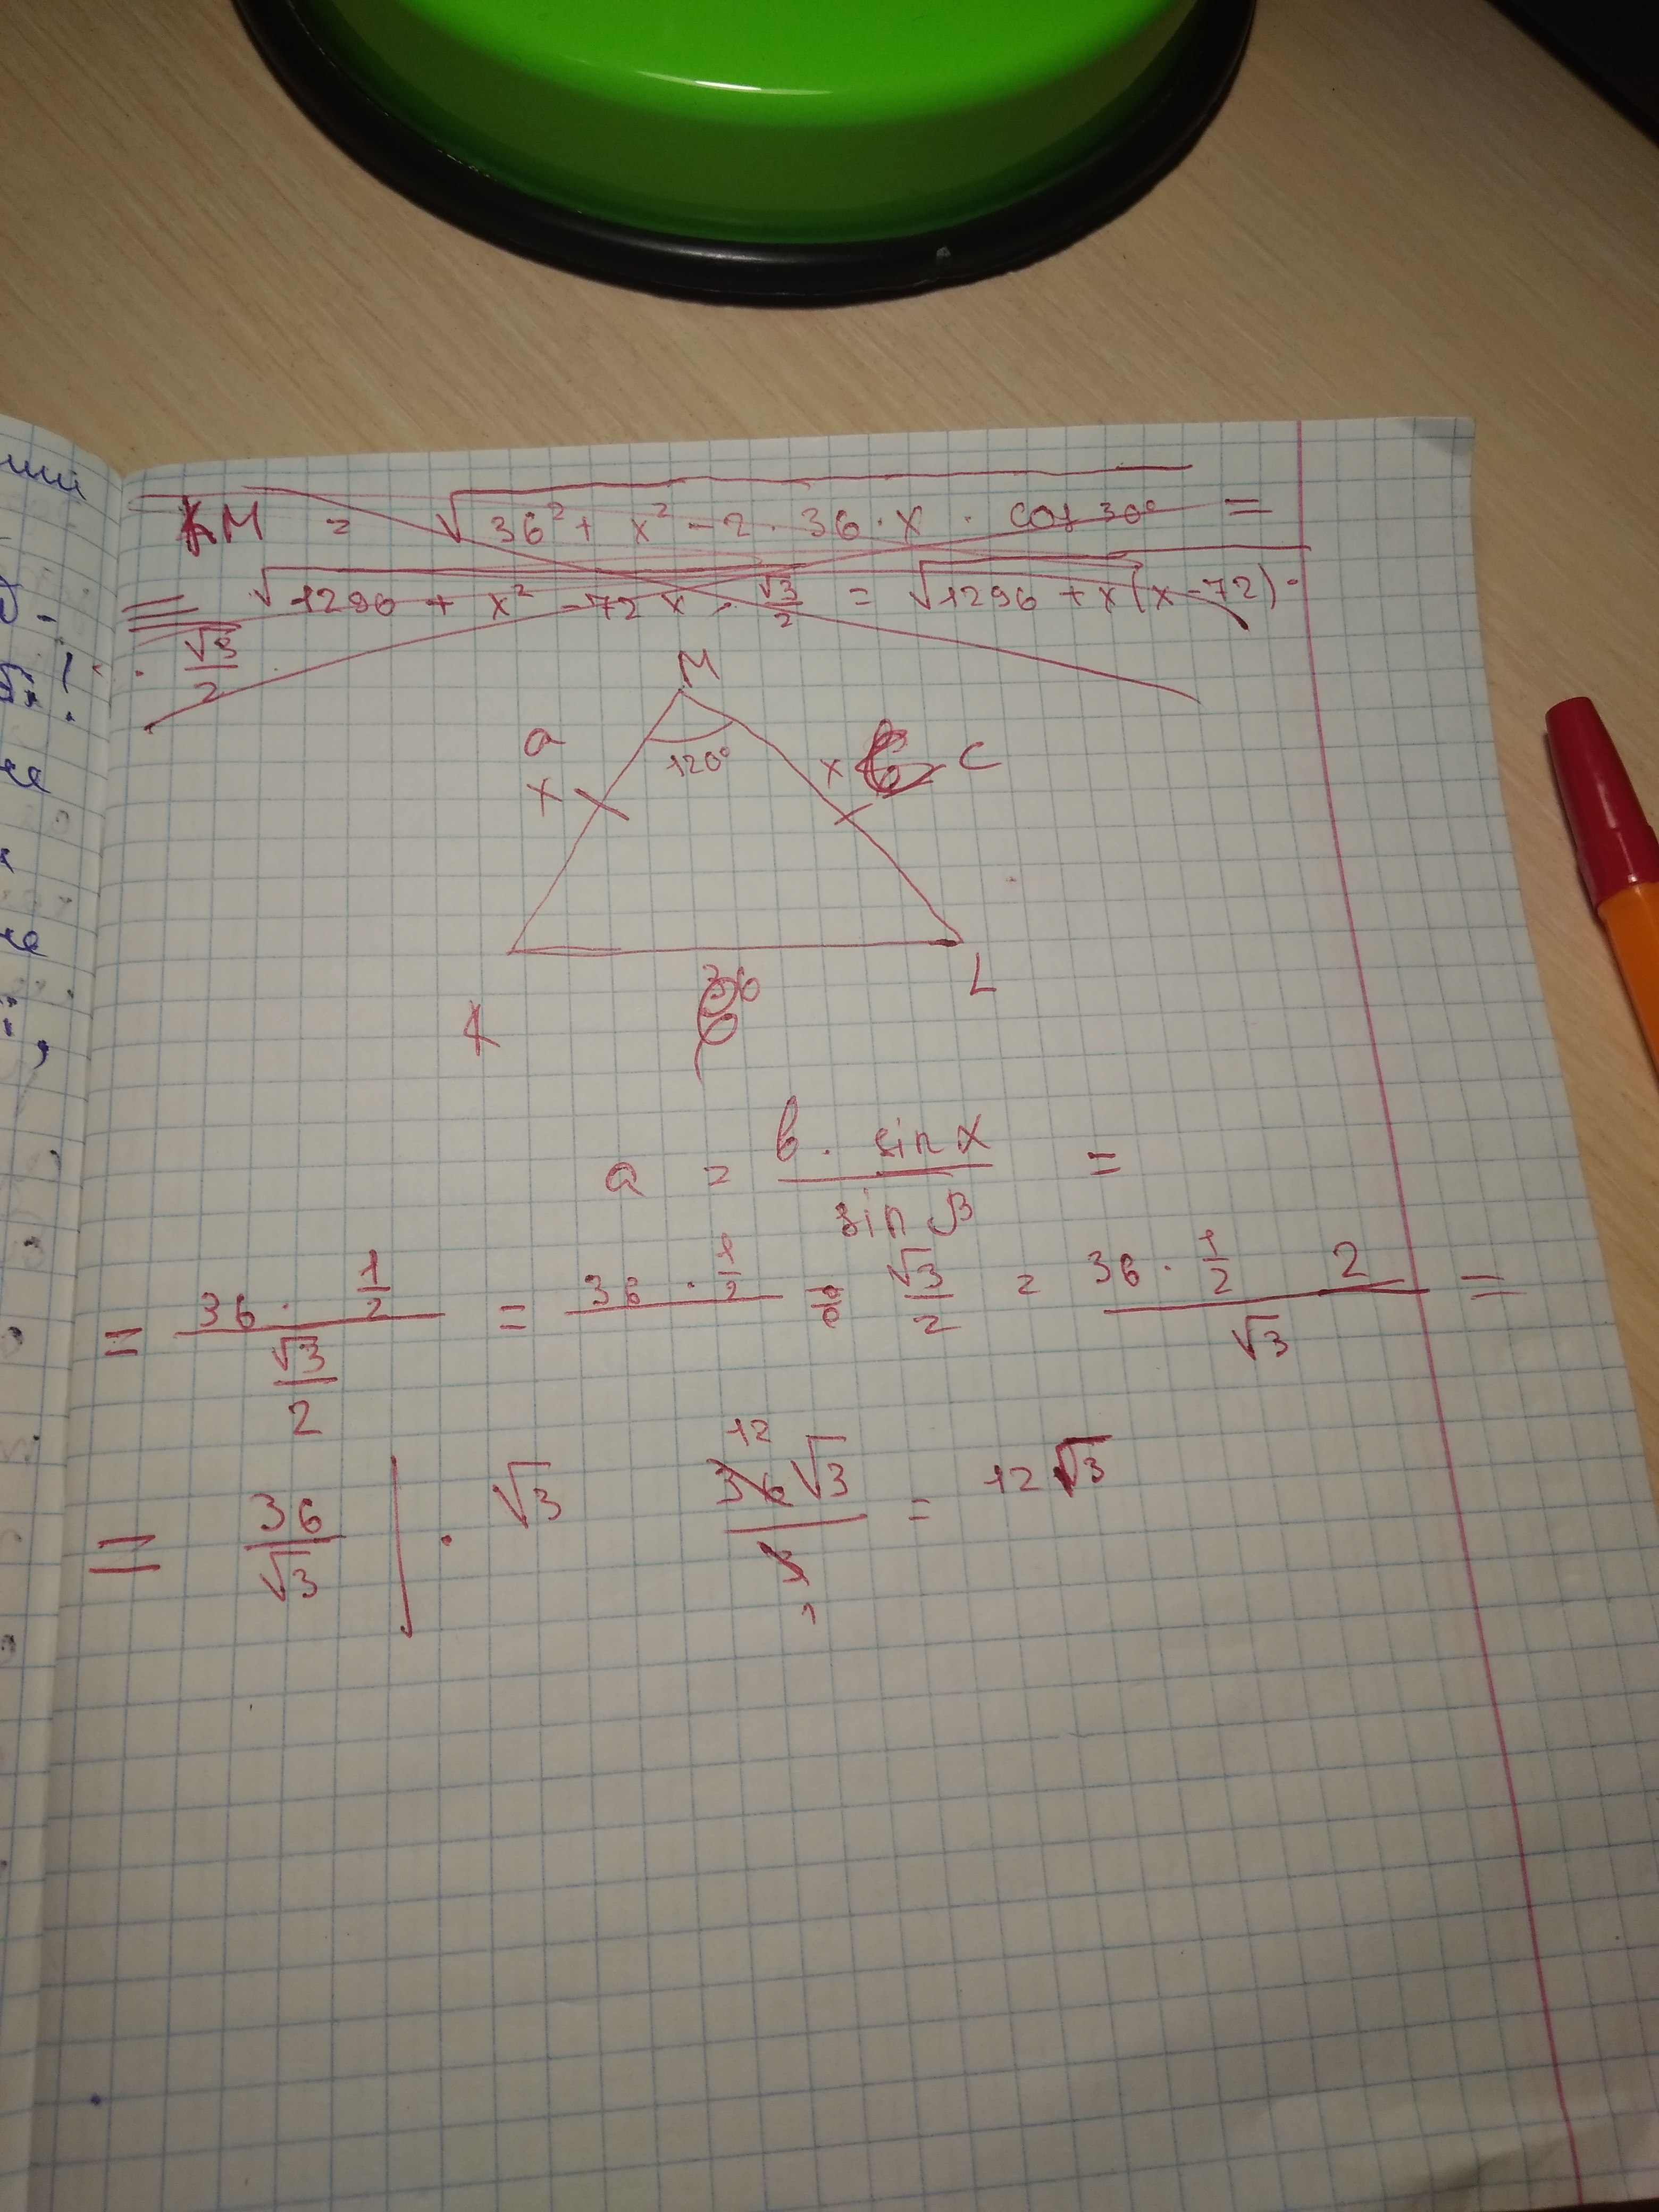 KM = √(36² + x² - 2 · 36 · x · cos 30°) =
= √(1296 + x² - 72x · √3/2) = √(1296 + x(x - 72) ·
· √3/2
M
a
120°
x
x
c
36
L
K
b
a = (b · sin α)/(sin β) =
= (36 · 1/2)/(√3/2) = 36 · 1/2 ÷ √3/2 = (36 · 1/2 2)/√3 =
= 36/√3 | · √3 36√3/3 = 12√3
12
1